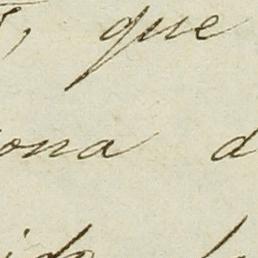 , que
ona d
ido